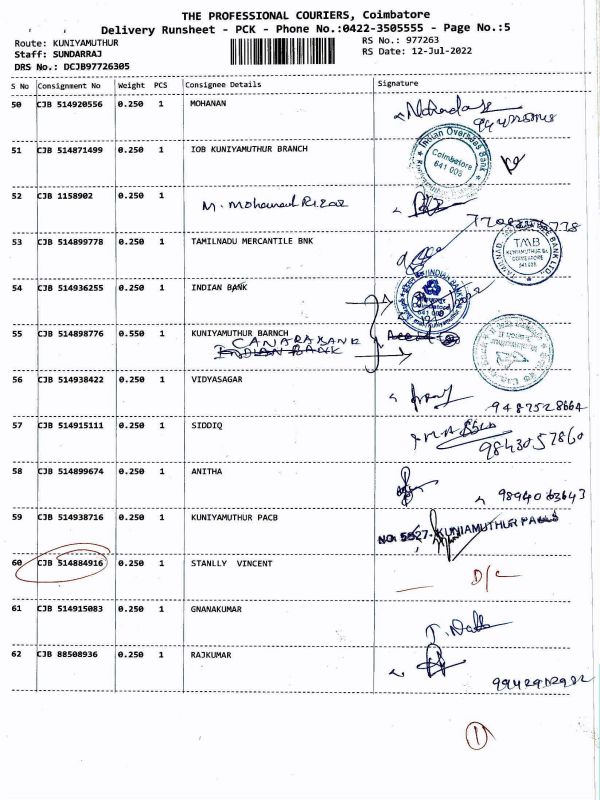 THE PROFESSIONAL COURIERS, Coimbatore
Delivery Runsheet - PCK - Phone No.:0422-3505555 - Page No.:5
Route: KUNIYAMUTHUR
RS No.: 977263
Staff: SUNDARRAJ
RS Date: 12-Jul-2022
DRS No.: DCJB97726305
S No Consignment No Weight PCS Consignee Details Signature
50 CJB 514920556 0.250 1 MOHANAN
51 CJB 514871499 0.250 1 IOB KUNIYAMUTHUR BRANCH
Indian Overseas Bank
Coimbatore
641 008
52 CJB 1158902 0.250 1 M. Mohamed Rizaz
53 CJB 514899778 0.250 1 TAMILNADU MERCANTILE BNK
TMB
54 CJB 514936255 0.250 1 INDIAN BANK
55 CJB 514898776 0.550 1 KUNIYAMUTHUR BARNCH
CANARA BANK
INDIAN BANK
56 CJB 514938422 0.250 1 VIDYASAGAR
9487528664
57 CJB 514915111 0.250 1 SIDDIQ
9843057860
58 CJB 514899674 0.250 1 ANITHA
9894063643
59 CJB 514938716 0.250 1 KUNIYAMUTHUR PACB
KUNIAMUTHUR
60 CJB 514884916 0.250 1 STANLLY VINCENT
D/C
61 CJB 514915083 0.250 1 GNANAKUMAR
62 CJB 88508936 0.250 1 RAJKUMAR
1